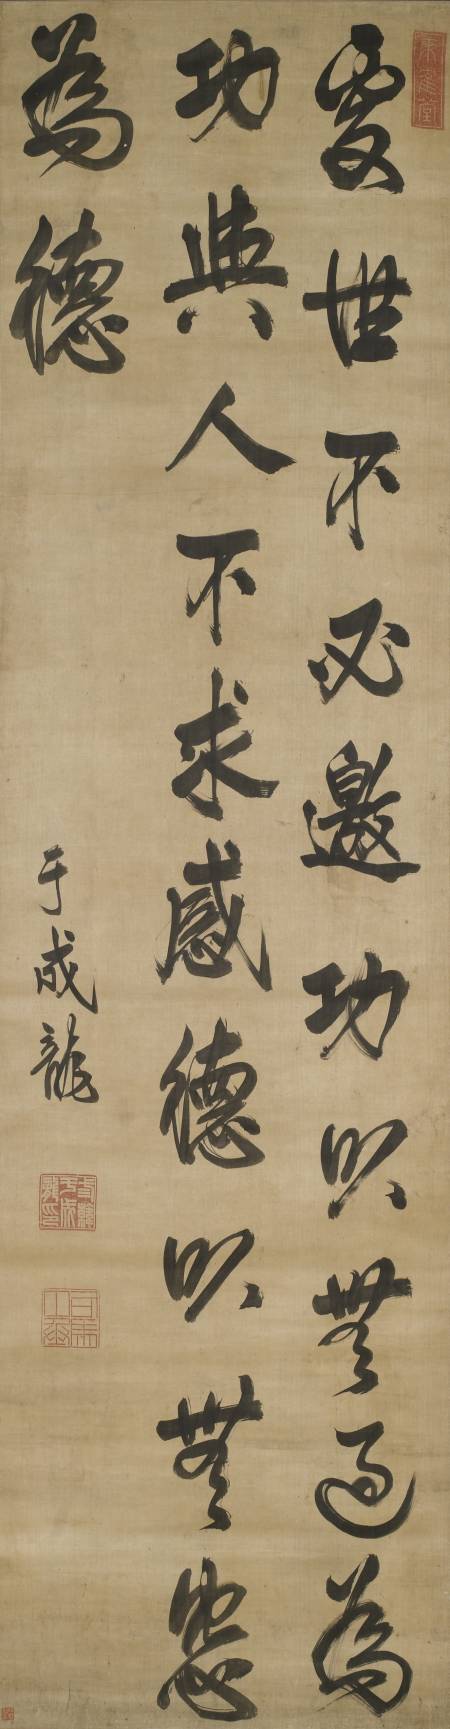 處世不必邀功以無過為
功與人不求感德以無怨
為德
于成龍